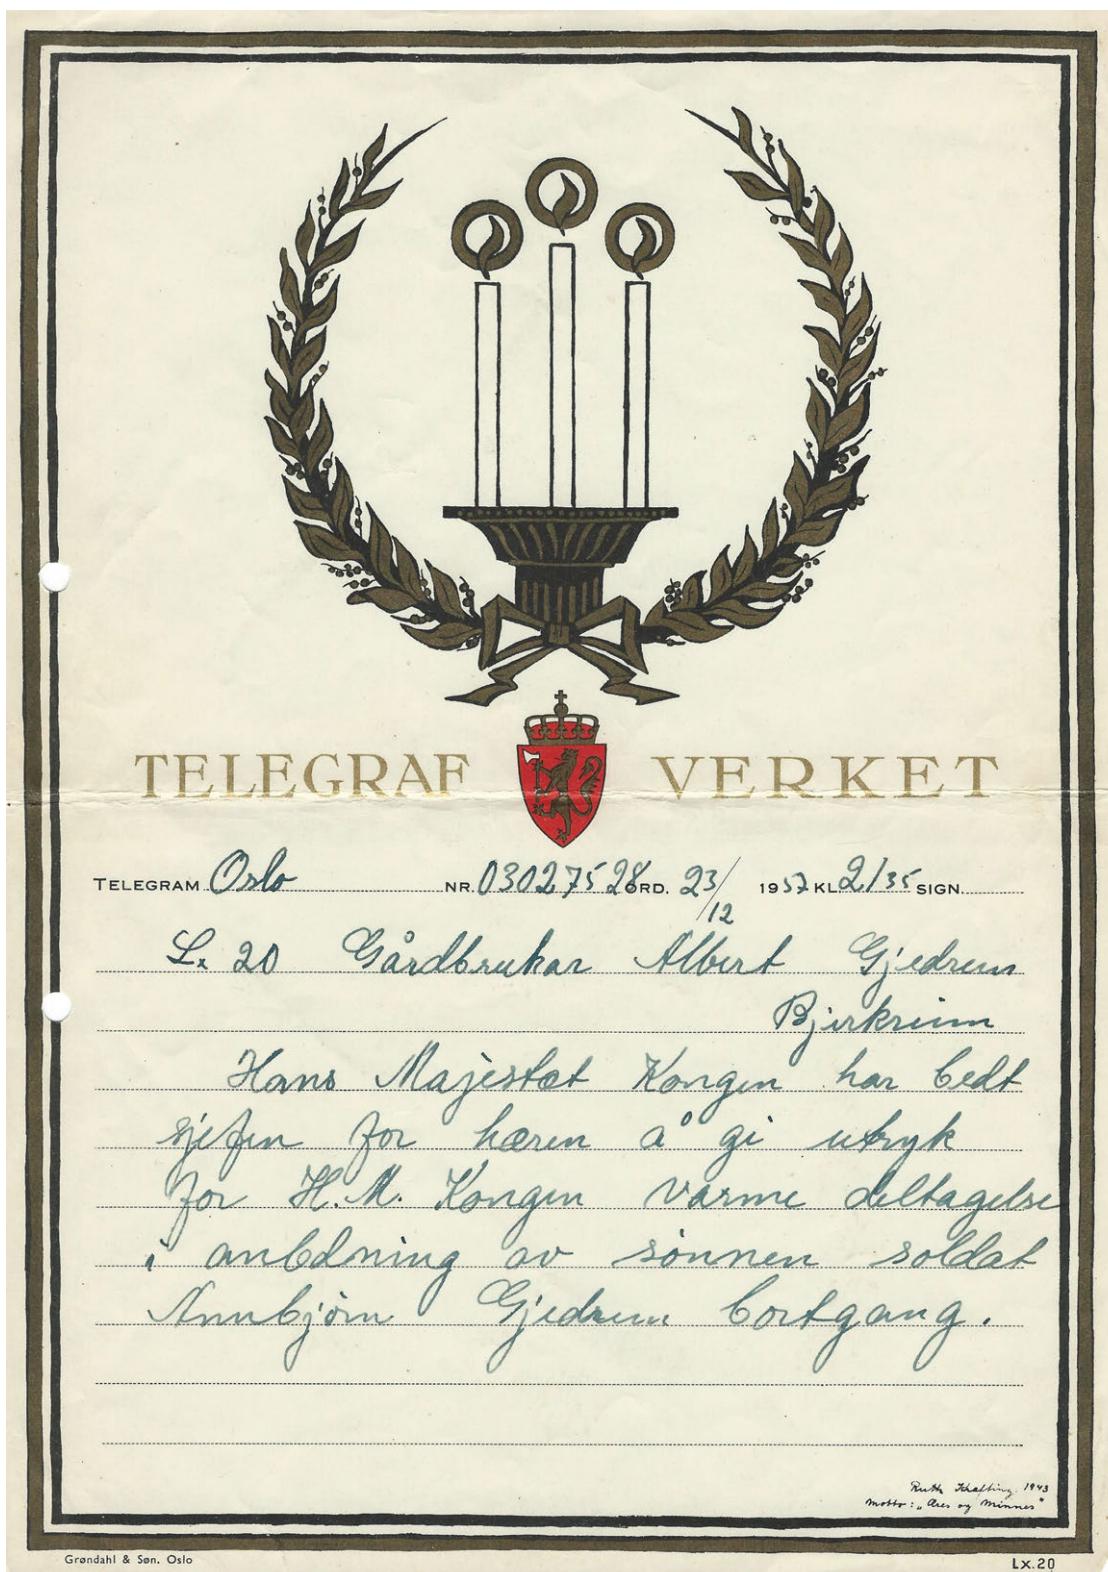 TELEGRAF VERKET
TELEGRAM Oslo NR. 030275 28 ORD. 23/12 1957 KL 2135 SIGN.
Lx 20 Gårdbrukar Albert Gjedrem
Bjerkreim
Hans Majestæt Kongen har bedt
sjefen for hæren å gi utryk
for H.M. Kongen varme deltagelse
i anledning av sønnen soldat
Annbjørn Gjedrem bortgang.
Ruth Krefting 1943
Motto: „Æres og Minnes"
Grøndahl & Søn. Oslo
Lx.20